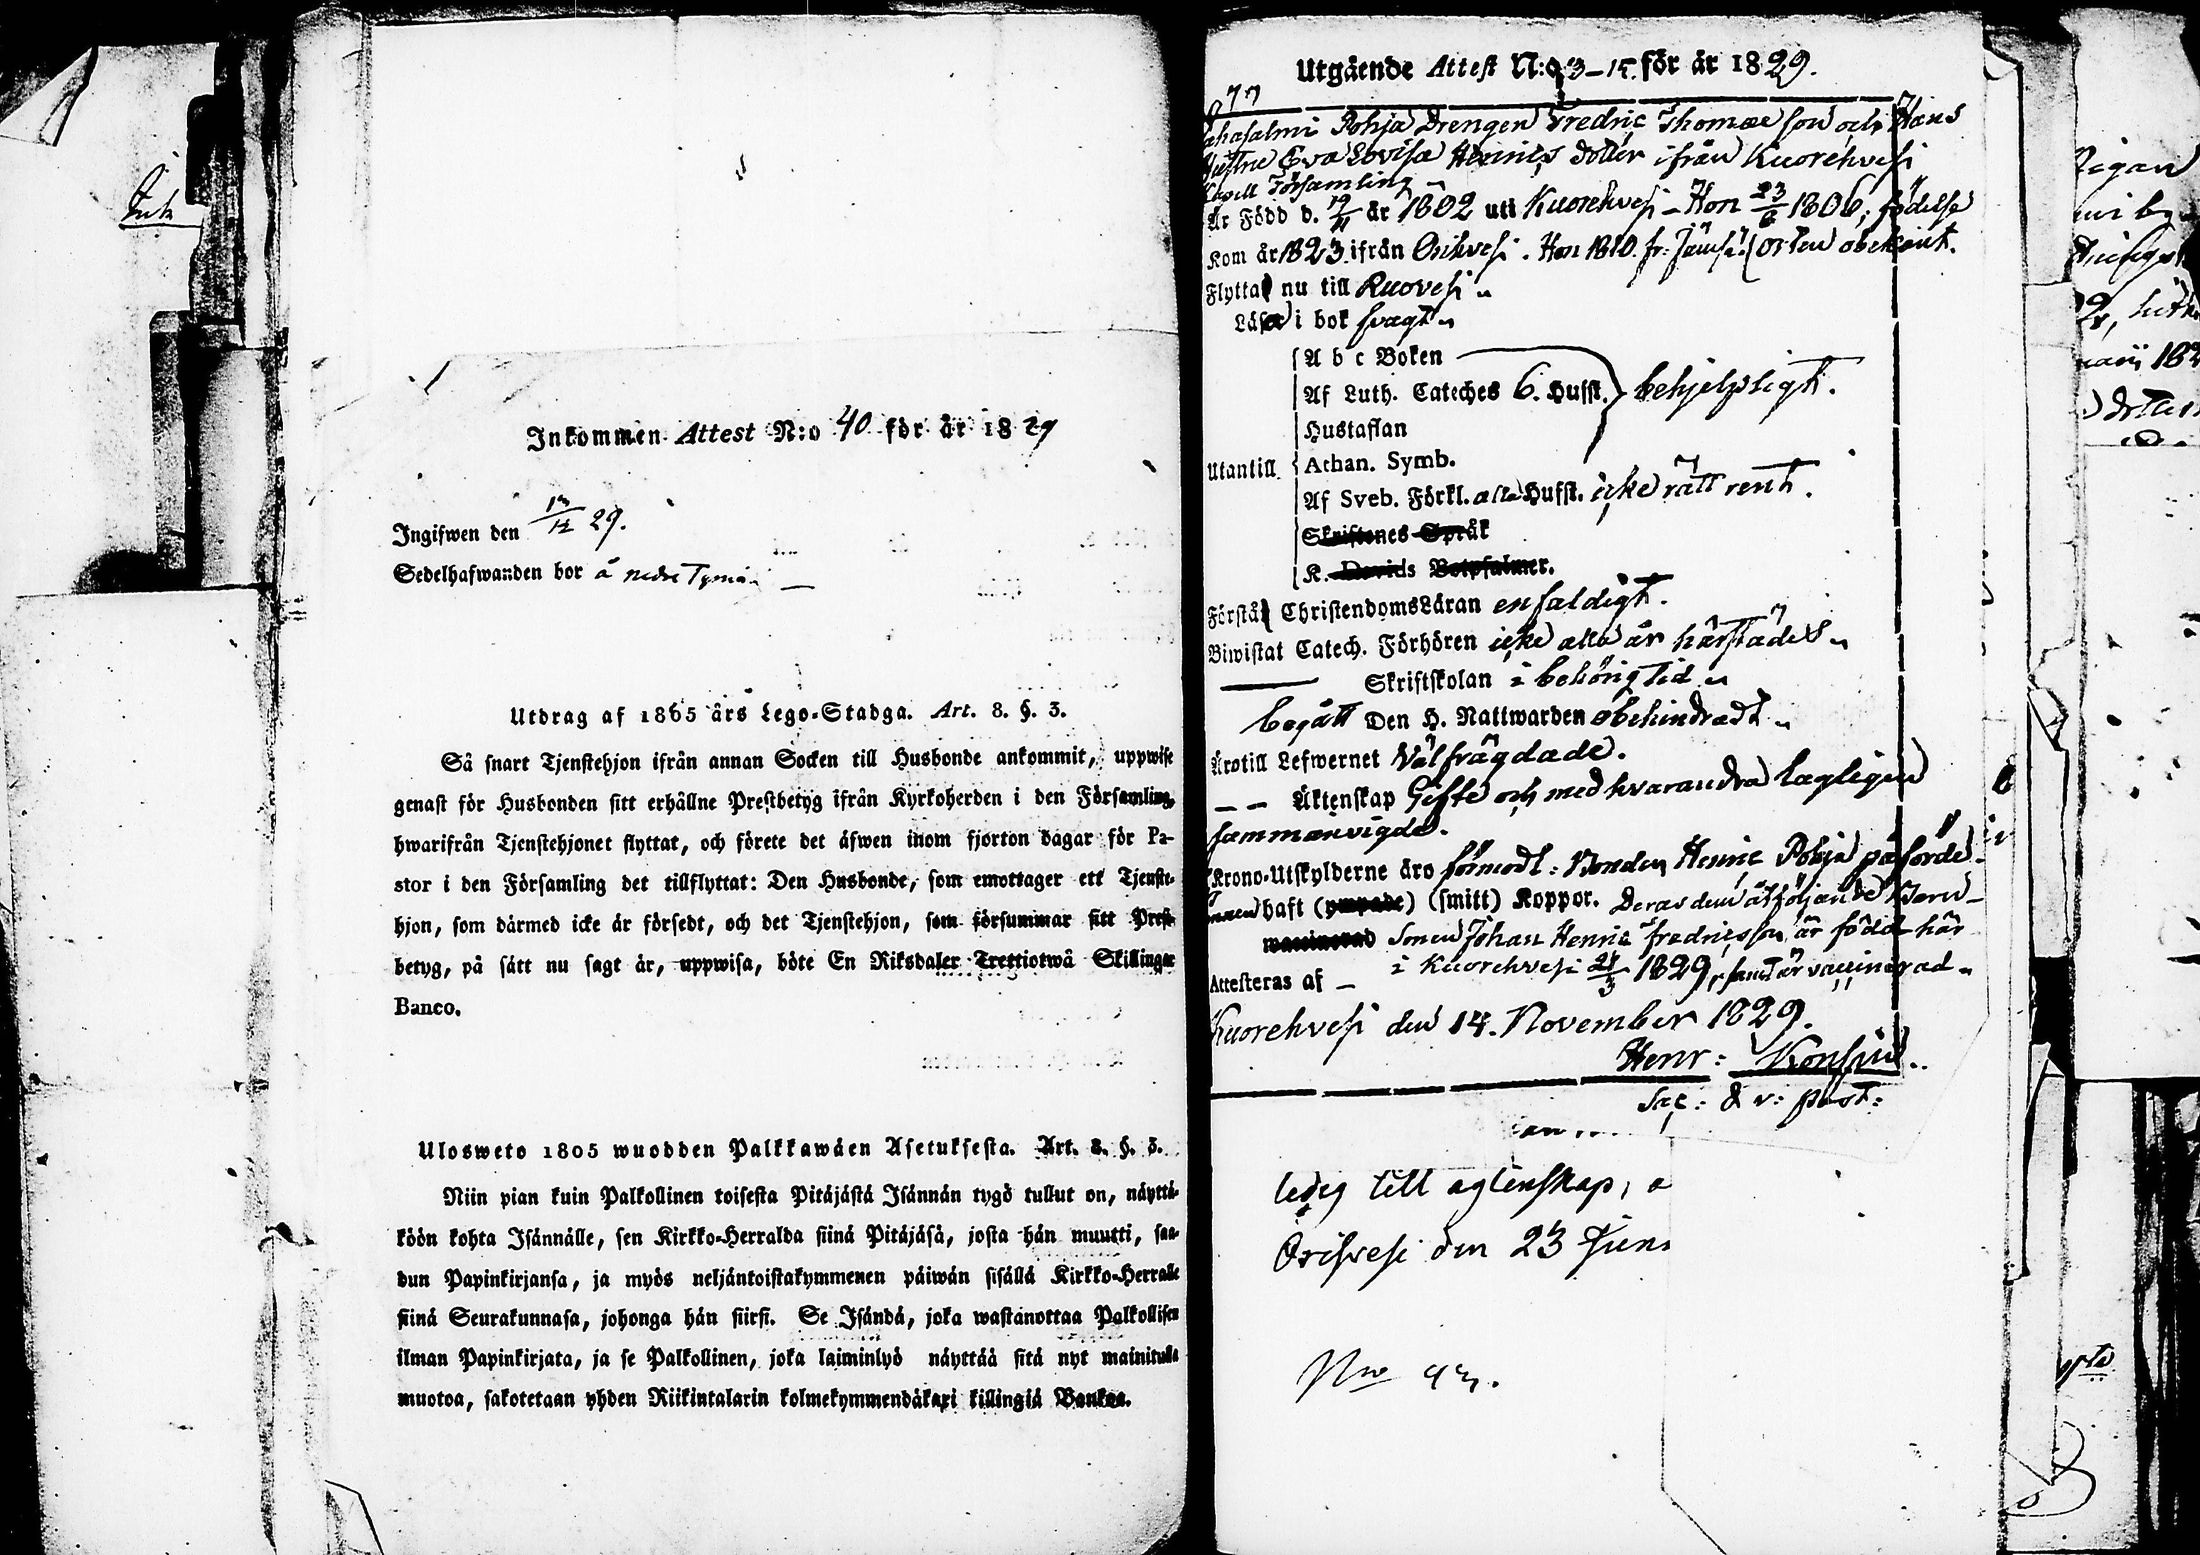 Inkommen Attest N:o 40 för år 1829
Ingifwen den 13/12 29.
Sedelhafwanden bor å nedre
Utdrag af 1865 års Lego-Stadga. Art. 8. §. 3.
Så snart Tjenstehjon ifrån annan Socken till Husbonde ankommit, uppwise
genast för Husbonden sitt erhållne Prestbetyg ifrån Kyrkoherden i den Församling,
hwarifrån Tjenstehjonet flyttat, och förete det äfwen inom fjorton dagar för Pa-
stor i den Församling det tillflyttat: Den Husbonde, som emottager ett Tjenste-
hjon, som därmed icke är försedt, och det Tjenstehjon, som försummar sitt Prest-
betyg, på sätt nu sagt är, uppwisa, böte En Riksdaler Trettiotwå Skillingar
Banco.
Ulosweto 1805 wuodden Palkkawäen Asetuksesta. Art. 8. §. 3.
Niin pian kuin Palkollinen toisesta Pitäjästä Isännän tygö tullut on, näyttä-
köön kohta Isännälle, sen Kirkko-Herralda siinä Pitäjäsä, josta hän muutti, saa-
dun Papinkirjansa, ja myös neljäntoistakymmenen päiwän sisällä Kirkko-Herralle
siinä Seurakunnasa, johonga hän siirsi. Se Isändä, joka wastanottaa Palkollisen
ilman Papinkirjata, ja se Palkollinen, joka laiminlyö näyttää sitä nyt mainitulla
muotoa, sakotetaan yhden Riikintalarin kolmekymmendäkaxi killingiä Bankoa.
Utgående Attest N:o för år 1829.
Pohja Drengen Fredric Thomæ son och Hans
Hustru Eva Lovisa Henrics dotter ifrån Kuorehvesi
Kapell Församling
Är Född d. 19/11 år 1802 uti Kuorehvesi - Hon 23/6 1806, födelse
Kom år 1823 ifrån Orihvesi. Hon 1810. fr: Jämsä. (orten obekant.
Flytta nu till Ruovesi
Läsa i bok svagt
A b c Boken
Af Luth. Cateches 6. Hufst. behjelpligt.
Hustaflan
Utantill Athan. Symb.
Af Sveb. Förkl. alla Hufst. icke rätt rent.
Skriftenes Språk
K. Davids Botpsalmer.
Förstå ChristendomsLäran enfaldigt.
Biwistat Catech. Förhören icke alla år härstädes
Skriftskolan i behörig tid
begått Den H. Nattwarden obehindradt
Äro till Lefwernet Välfrägdade.
— — Äktenskap Gifte och med hvarandra lagligen
sammanvigde.
Krono-Utskylderne äro förmodl: Bonden Henric Pohja påförde.
haft (ympade) (smitt) Koppor. Deras dem åtföljande Barn
waccinerad Sonen Johan Henric Fredricsson, är född här
Attesteras af — i Kuorehvesi 21/3 1829, samt är vaccinerad
Kuorehvesi den 14. November 1829.
Henr:
Sac: & v: past:
ledig till ägtenskap, a
Orihvesi den 23 Juni